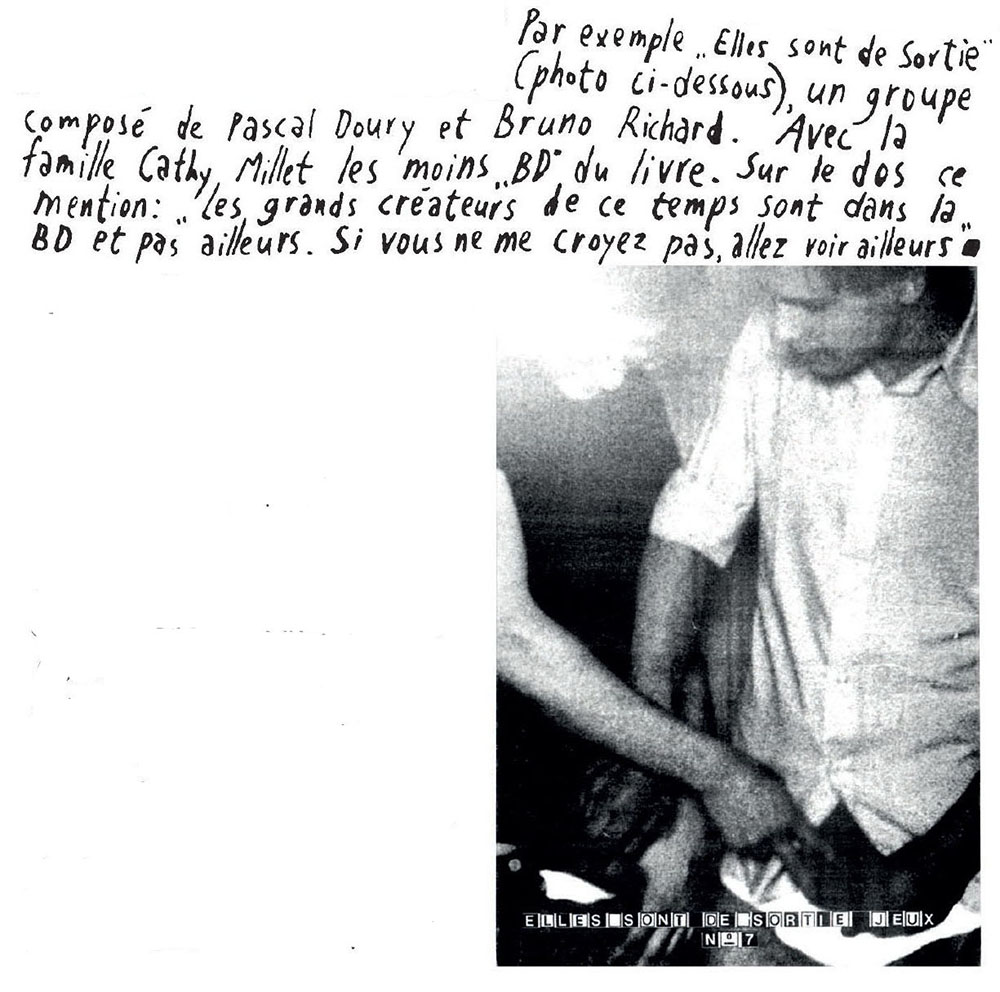 Par exemple „Elles sont de sortie"
(photo ci-dessous), un groupe
composé de Pascal Doury et Bruno Richard. Avec la
famille Cathy Millet les moins „BD" du livre. Sur le dos ce
mention: „Les grands créateurs de ce temps sont dans la
BD et pas ailleurs. Si vous ne me croyez pas, allez voir ailleurs".
ELLES SONT DE SORTIE JEUX
Nº 7